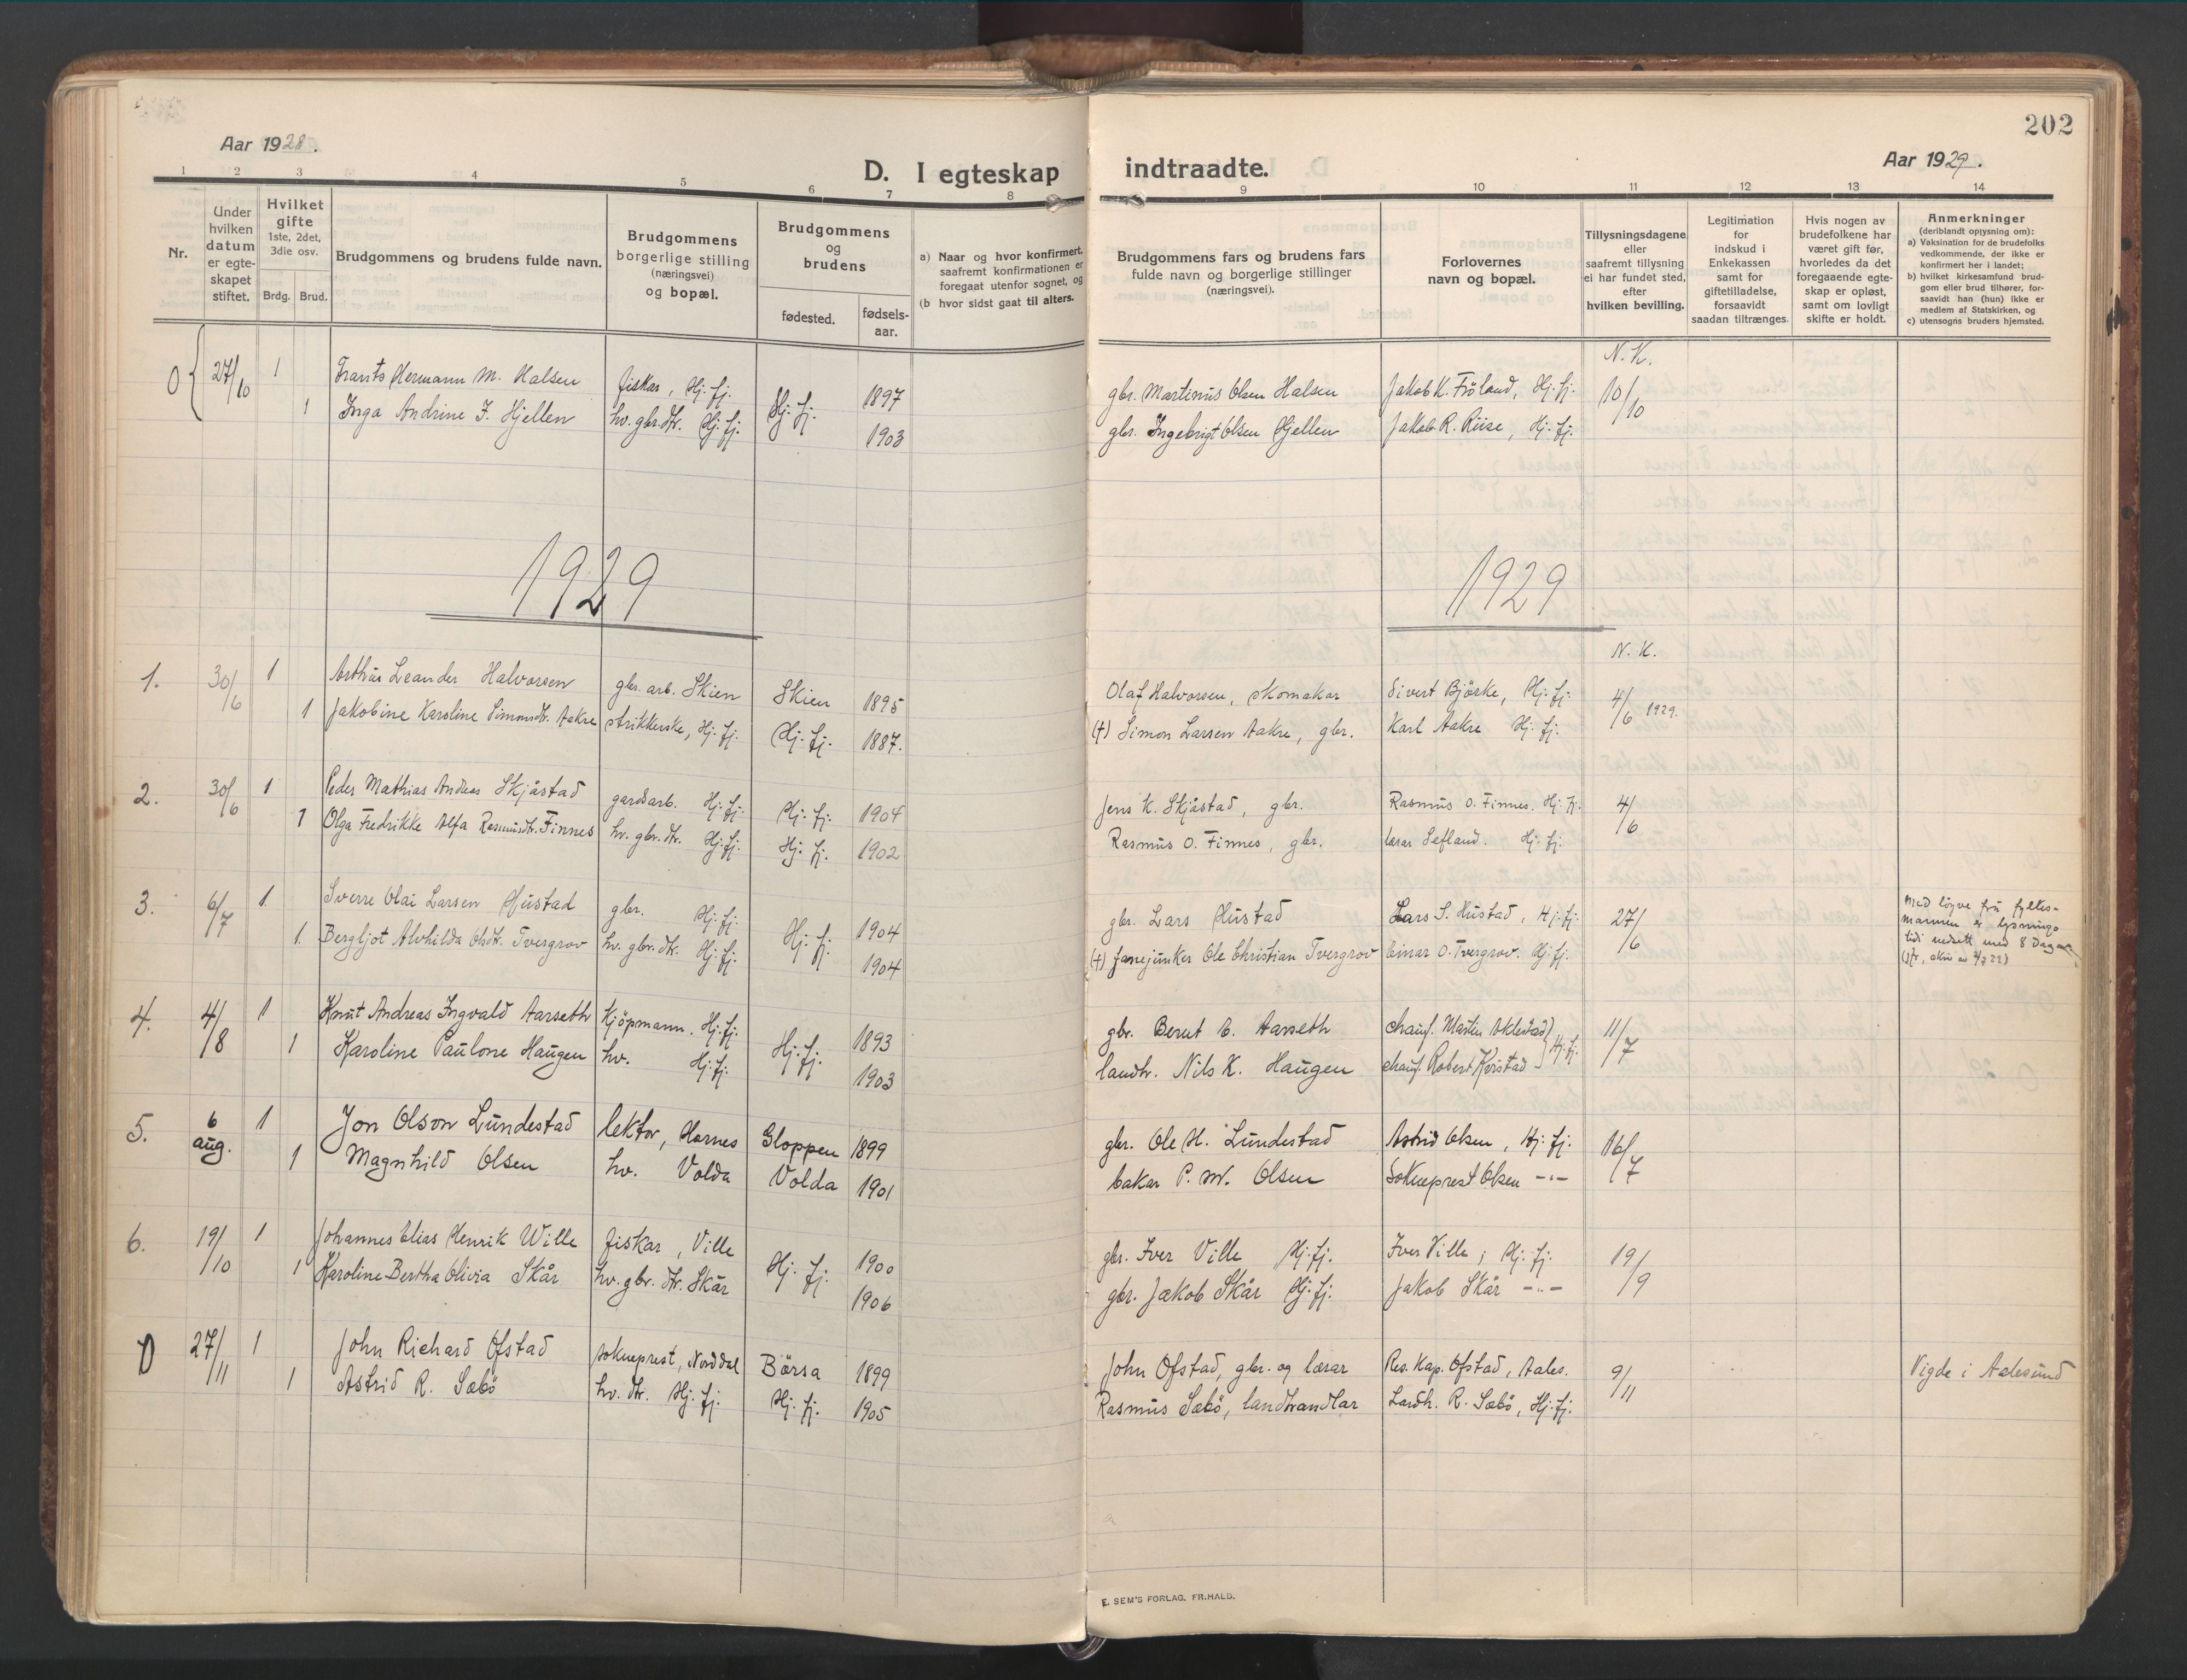 202
Aar 1928.
D. I egteskap indtraadte.
Aar 1929.
1 2 3 4 5 6 7 8 9 10 11 12 13 14
Nr.
Under hvilken datum er egte-skapet stiftet.
Hvilket gifte 1ste, 2det, 3die osv.
Brdg. Brud.
Brudgommens og brudens fulde navn.
Brudgommens borgerlige stilling (næringsvei) og bopæl.
Brudgommens og brudens
fødested.
fødsels-aar.
a) Naar og hvor konfirmert, saafremt konfirmationen er foregaat utenfor sognet, og
(b hvor sidst gaat til alters.
Brudgommens fars og brudens fars fulde navn og borgerlige stillinger (næringsvei).
Forlovernes navn og bopæl.
Tillysningsdagene eller saafremt tillysning ei har fundet sted, efter hvilken bevilling.
Legitimation for indskud i Enkekassen samt for giftetilladelse, forsaavidt saadan tiltrænges.
Hvis nogen av brudefolkene har været gift før, hvorledes da det foregaaende egte-skap er opløst, samt om lovligt skifte er holdt.
Anmerkninger (deriblandt opjysning om):
a) Vaksination for de brudefolks vedkommende, der ikke er konfirmert her i landet;
b) hvilket kirkesamfund brud-gom eller brud tilhører, for-saavidt han (hun) ikke er medlem af Statskirken, og
c) utensogns bruders hjemsted.
N. K.
0 27/10 1 Frants Hermann M. Halsen fiskar, Hj. fj. Hj. fj. 1897 gbr. Martinus Olsen Halsen Jakob K. Fröland, Hj. fj. 10/10
1 Inga Andrine I. Hjellen hv. gbr. dtr. Hj. fj. 1903 gbr. Ingebrigt Olsen Hjellen Jakob R. Riise, Hj. fj.
1929 1929
N. K.
1. 30/6 1 Arthur Leander Halvorsen gbr. arb. Skien Skien 1895 Olaf Halvorsen, skomakar Sivert Björke, Hj. fj. 4/6 1929.
1 Jakobine Karoline Simonsdtr. Aakre strikkerske, Hj. fj. Hj. fj. 1887. (†) Simon Larsen Aakre, gbr. Karl Aakre Hj. fj.
2. 30/6 1 Peder Mathias Andreas Skjåstad gardsarb. Hj. fj. Hj. fj. 1904 Jens K. Skjåstad, gbr. Rasmus O. Finnes. Hj. fj. 4/6
1 Olga Fredrikke Alfa Rasmusdtr. Finnes hv. gbr. dtr. Hj. fj. Hj. fj. 1902 Rasmus O. Finnes, gbr. lærar Hj. fj.
3. 6/7 1 Sverre Olai Larsen Hustad gbr. Hj. fj. Hj. fj. 1904 gbr. Lars Hustad Lars S. Hustad, Hj. fj. 27/6
1 Bergljot Alvhilda Olsdtr. Tvergrov hv. gbr. dtr. Hj. fj. 1904 (†) fanejunker Ole Christian Tvergrov Einar O. Tvergrov. Hj. fj.
Med löyve frå fylkes-
mannen er lysnings
tidi nedsett med 8 Dagar
4. 4/8 1 Knut Andreas Ingvald Aarseth Kjöpmann. Hj. fj. Hj. fj. 1893 gbr. Berut E. Aarseth chauf. Martin Aklestad Hj. fj. 11/7
1 Karoline Paulone Haugen hv. Hj. fj. 1903 landhr. Nils K. Haugen chauf. Robert
5. 6 aug. 1 Jon Olson Lundestad lektor, Hornes Gloppen 1899 gbr. Ole H. Lundestad Astrid Olsen, Hj. fj. 16/7
1 Magnhild Olsen hv. Volda Volda 1901 bakar P. M. Olsen Sokneprest Olsen -"-
6. 19/10 1 Johannes Elias Henrik Wille fiskar, Ville Hj. fj. 1900 gbr. Iver Ville Hj. fj. Iver Ville, Hj. fj. 19/9
1 Karoline Bertha Olivia Skår hv. gbr. dtr. Skår 1906 gbr. Jakob Skår Hj. fj. Jakob Skår -"-
0 27/11 1 John Richard Ofstad sokneprest, Norddal Börsa 1899 John Ofstad, gbr. og lærar Res. Kap. Ofstad, Aales. 9/11 Vigde i Aalesund
1 Astrid R. Sæbö hv. dtr. Hj. fj. Hj. fj. 1905 Rasmus Sæbö, landhandlar Landh. R. Sæbö, Hj. fj.
E. SEM'S FORLAG. FR.HALD.